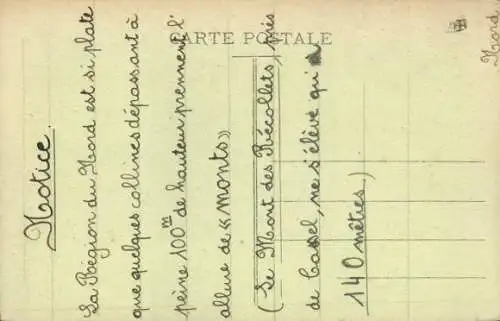 CARTE POSTALE
Nord
Notice.
La Région du Nord est si plate
que quelques collines dépassant à
peine 100m de hauteur prennent l'
allure de « monts »
(Le Mont des Récollets, près
de Cassel, ne s'élève qu'à
140 mètres)